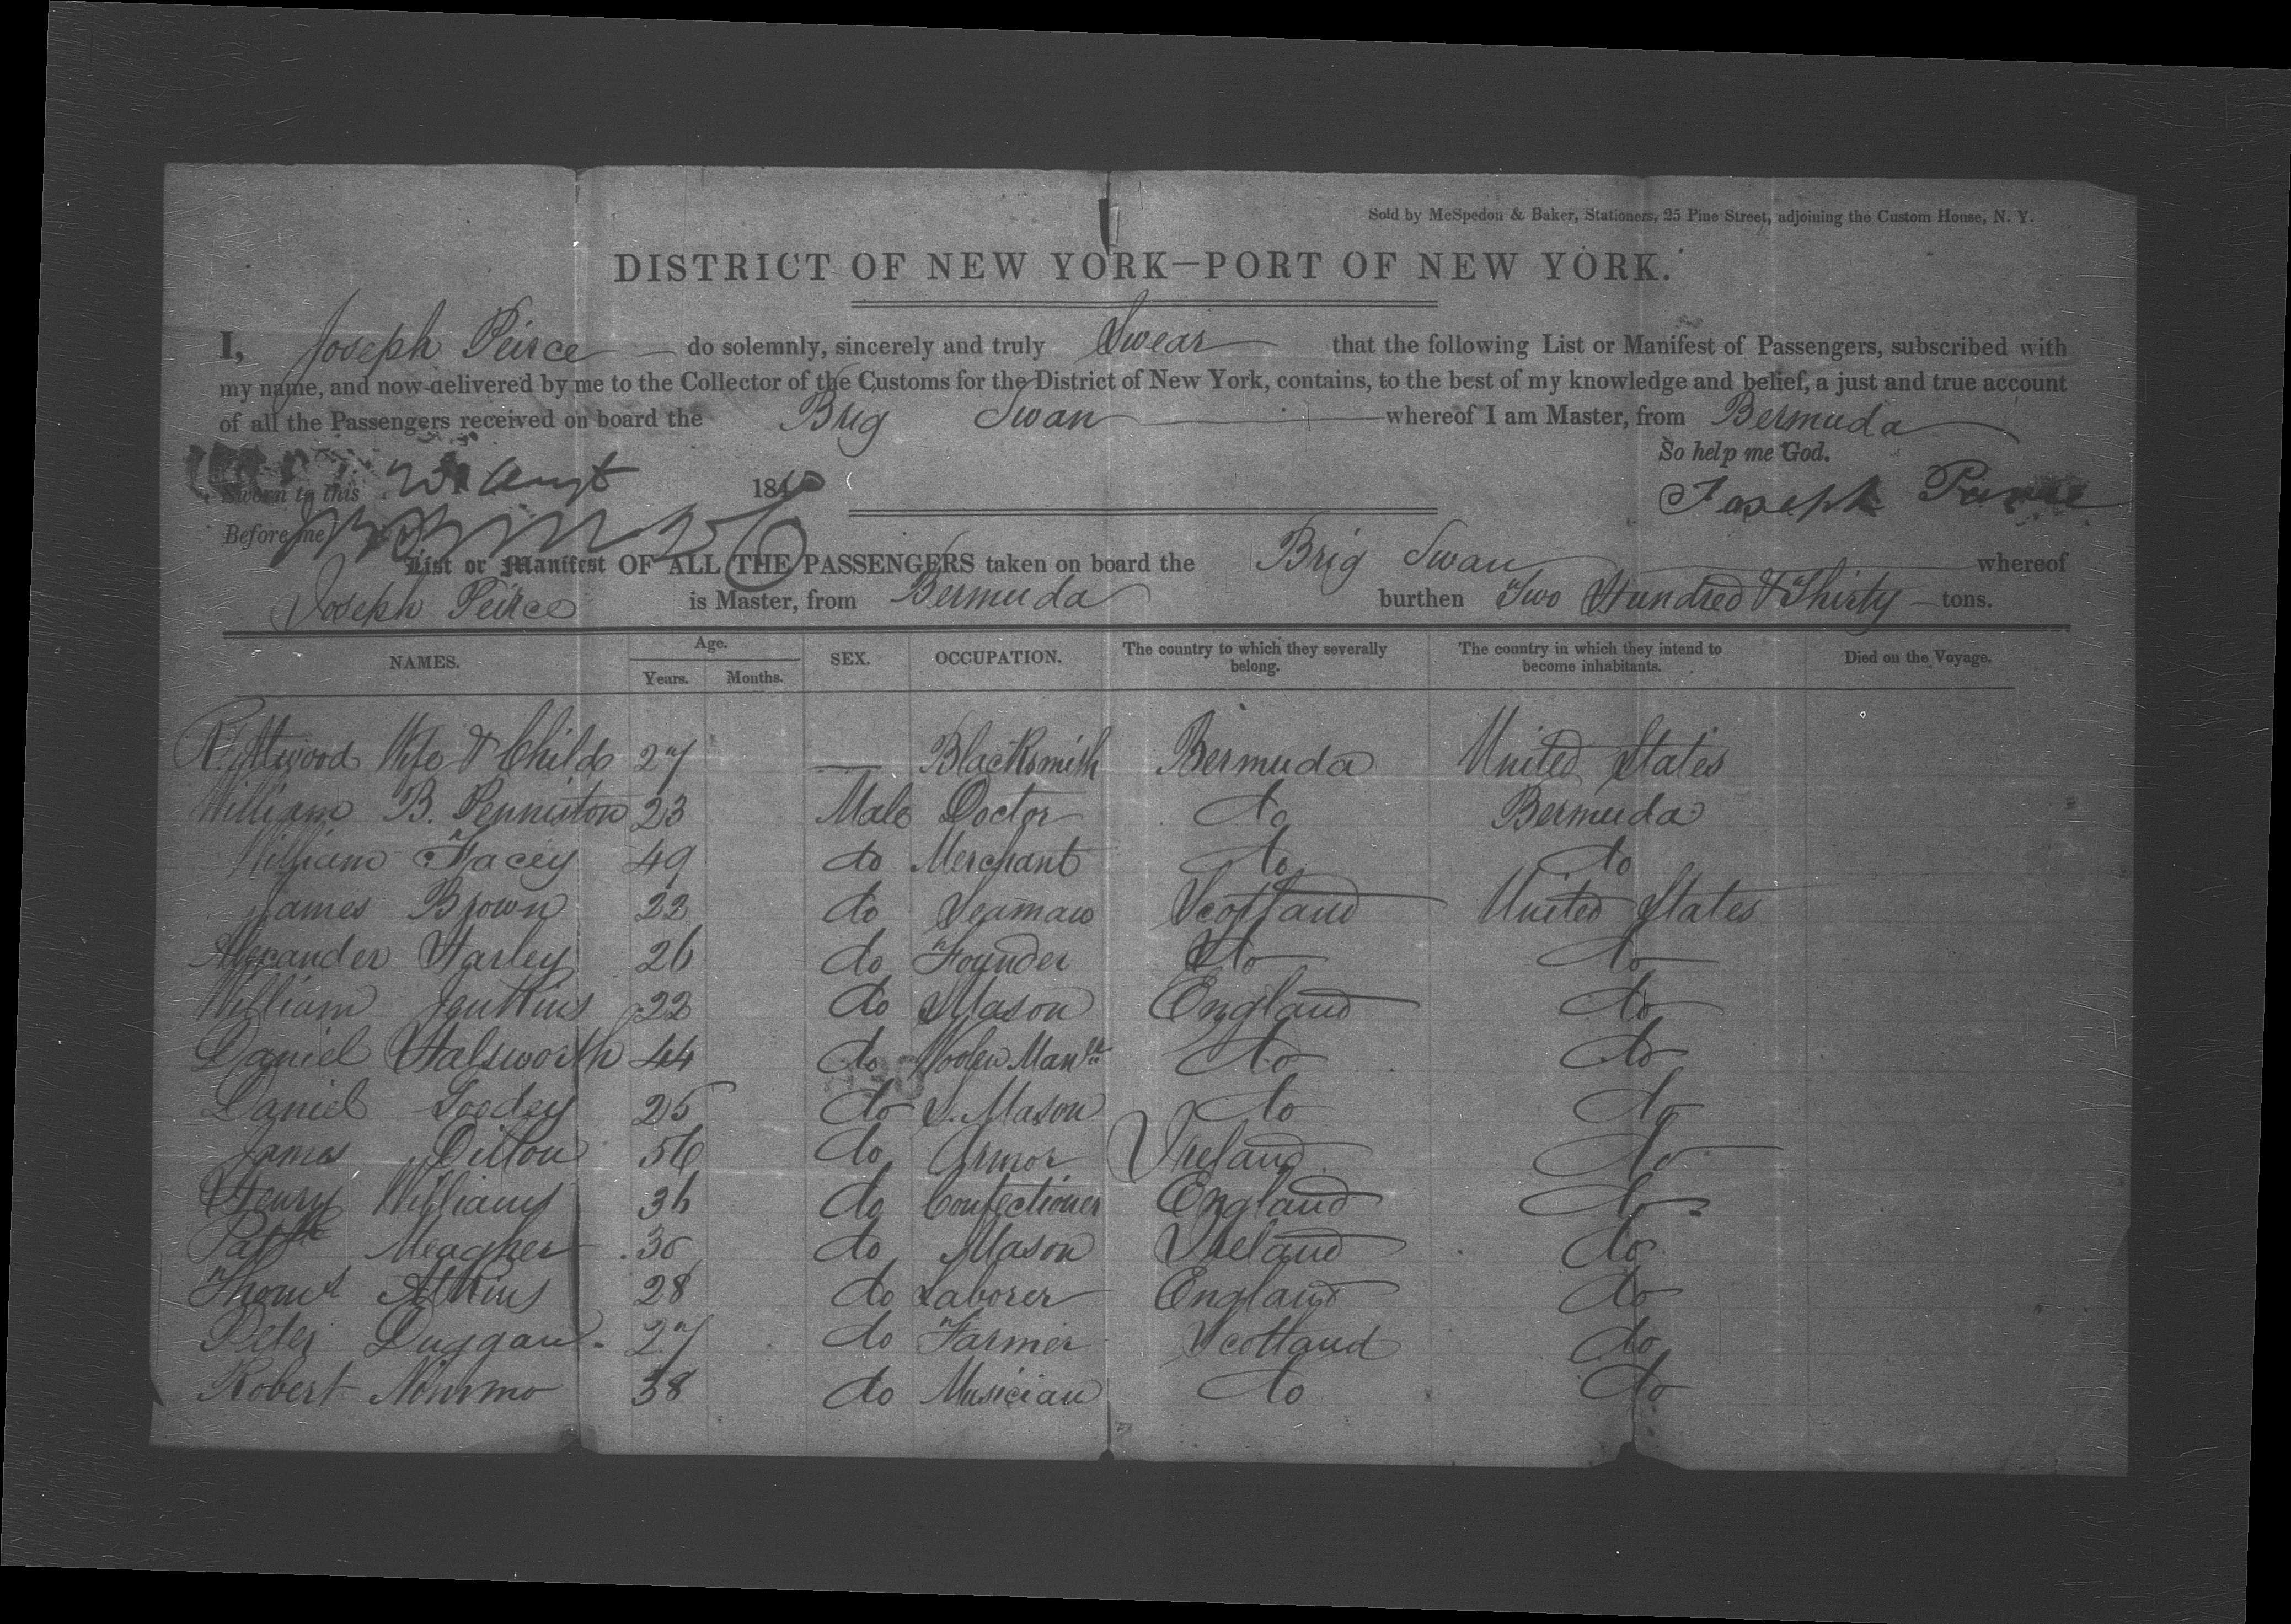 Sold by McSpedon & Baker, Stationers, 25 Pine Street, adjoining the Custom House, N. Y.
DISTRICT OF NEW YORK—PORT OF NEW YORK.
I, Joseph Peirce do solemnly, sincerely and truly Swear that the following List or Manifest of Passengers, subscribed with
my name, and now delivered by me to the Collector of the Customs for the District of New York, contains, to the best of my knowledge and belief, a just and true account
of all the Passengers received on board the Brig Swan whereof I am Master, from Bermuda
So help me God.
Sworn to this Augt 184 Joseph Peirce
Before me
List or Manifest OF ALL THE PASSENGERS taken on board the Brig Swan whereof
Joseph Peirce is Master, from Bermuda burthen Two Hundred & Thirty tons.
NAMES. Age. Years. Months. SEX. OCCUPATION. The country to which they severally belong. The country in which they intend to become inhabitants. Died on the Voyage.
R. Attwood Wife & Child 27 — Blacksmith Bermuda United States
William B. Penniston 23 Male Doctor do Bermuda
William Facey 49 do Merchant do do
James Brown 22 do Seaman Scotland United States
Alexander Harley 26 do Founder do do
William Jenkins 22 do Mason England do
Daniel Halsworth 44 do Woolen do do
Daniel Goodey 25 do S. Mason do do
James Dillon 56 do Armor Ireland do
Henry Williams 36 do Confectioner England do
Patk Meagher 30 do Mason Ireland do
Thomas Atkins 28 do Laborer England do
Peter Duggan 27 do Farmer Scotland do
Robert Nimmo 38 do Musician do do